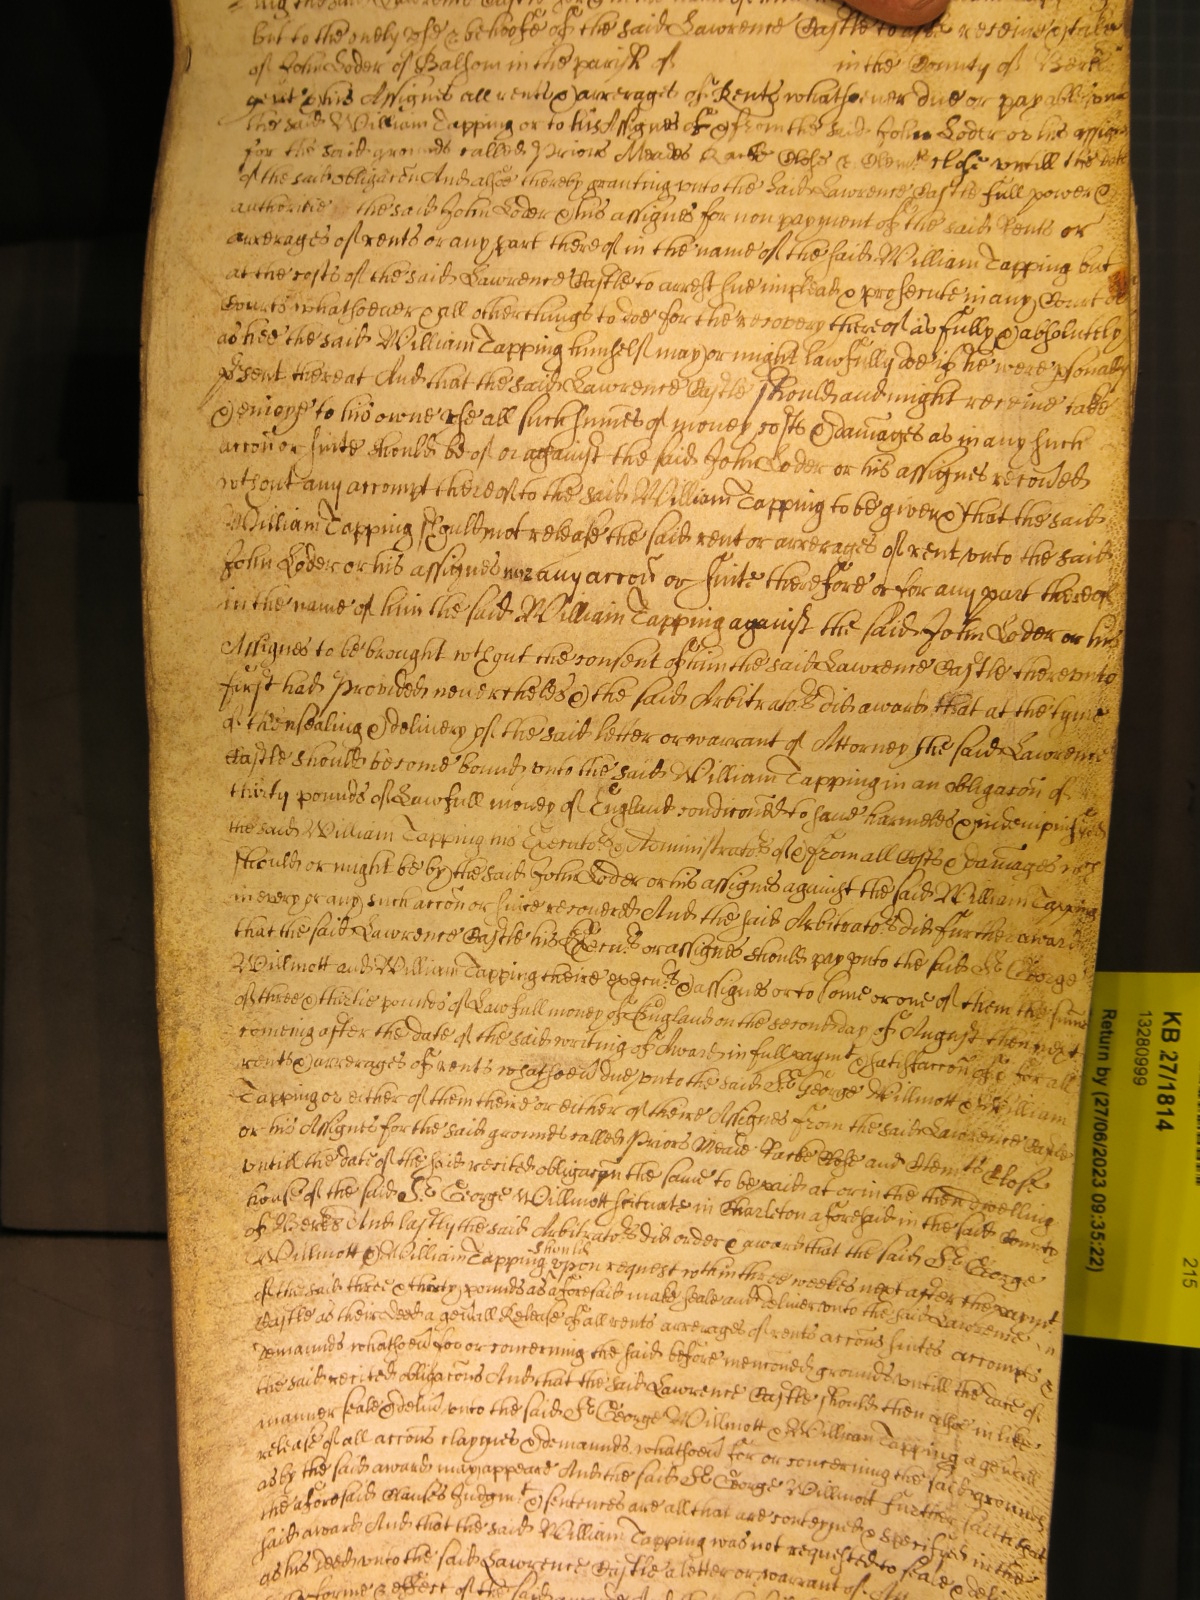 but to the onely use & behoofe of the said Lawrence Castle to aske receive & take
of John Loder of Balsom in the parish of in the County of Berk
gent & his Assignes all rents & arrerages of Rents whatsoever due or payable
the said William Tapping or to his Assignes of & from the said John Loder or his assign
for the said grounds called Priors Meade Racke Close & close untill the date
of the said obligacōn And alsoe thereby granting unto the said Lawrence Castle full power &
authoritie the said John Loder & his assignes for non payment of the said Rents or
arrerages of rents or any part thereof in the name of the said William Tapping but
at the costs of the said Lawrence Castle to arrest sue impleade & prosecute in any Court or
Courts whatsoever & all other things to doe for the recovery thereof as fully & absolutely
as hee the said William Tapping himself may or might lawfully doe if he were psonally
psent thereat And that the said Lawrence Castle should and might receive take
& enioye to his owne use all such sumes of money costs & damages as in any such
accōn or suite should be of or against the said John Loder or his assignes recovered
wthout any accompt thereof to the said William Tapping to be given & that the said
William Tapping should not release the said rent or arrerages of rent unto the said
John Loder or his assignes nor any accōn or suite therefore or for any part thereof
in the name of him the said William Tapping against the said John Loder or his
Assignes to be brought wthout the consent of him the said Lawrence Castle thereunto
first had Provided nevertheles & the said Arbitrators did award that at the tyme
of thensealing & delivery of the said letter or warrant of Attorney the said Lawrence
Castle should become bound unto the said William Tapping in an obligacōn of
thirty pounds of Lawfull money of England condicōned to save harmeles & indempnified
the said William Tapping his Executors & Administrators of & from all Costs & damages wch
should or might be by the said John Loder or his assignes against the said William Tapping
in every or any such accōn or suite recovered And the said Arbitrators did further award
that the said Lawrence Castle his Execut or assignes should pay unto the said Sr George
Willmott and William Tapping theire execut & assignes or to some or one of them the sume
of three & thirtie pounds of Lawfull money of England on the second day of August then next
coming after the date of the said writing of Award in full paymt & satisfaccōn of & for all
rents & arrerages of rents whatsoev due unto the said Sr George Willmott & William
Tapping or either of them theire or either of theire Assignes from the said Lawrence Castle
or his Assignes for the said grounds called Priors Meade Racke Close and Close
untill the date of the said recited obligacōn the same to be paid at or in the then dwelling
house of the said Sr George Willmott scituate in Charleton aforesaid in the said County
of Berks And lastly the said Arbitrators did order & award that the said Sr George
Willmott & William Tapping should upon request wthin three weekes next after the paymt
of the said three & thirty pounds as aforesaid make seale and deliver unto the said Lawrence
Castle as their deed a genāll Release of all rents arrerages of rents accōns suites accompts &
demaunds whatsoev for or concerning the said before mencōned grounds untill the date of
the said recited obligacōns And that the said Lawrence Castle should then alsoe in like
manner seale & deliv unto the said Sr George Willmott & William Tapping a genāll
release of all accōns claymes & demaunds whatsoev for or concerning the said grounds
as by the said award may appeare And the said Sr George Willmott further saith that
the aforesaid Clauses Judgmt & sentences are all that are conteyned & specified in the
said award And that the said William Tapping was not requested to seale & deliv
as his deed unto the said Lawrence Castle a letter or warrant of
forme & effect of the said
KB 27/1814
13280999
Return by (27/06/2023 09:35:22)
215